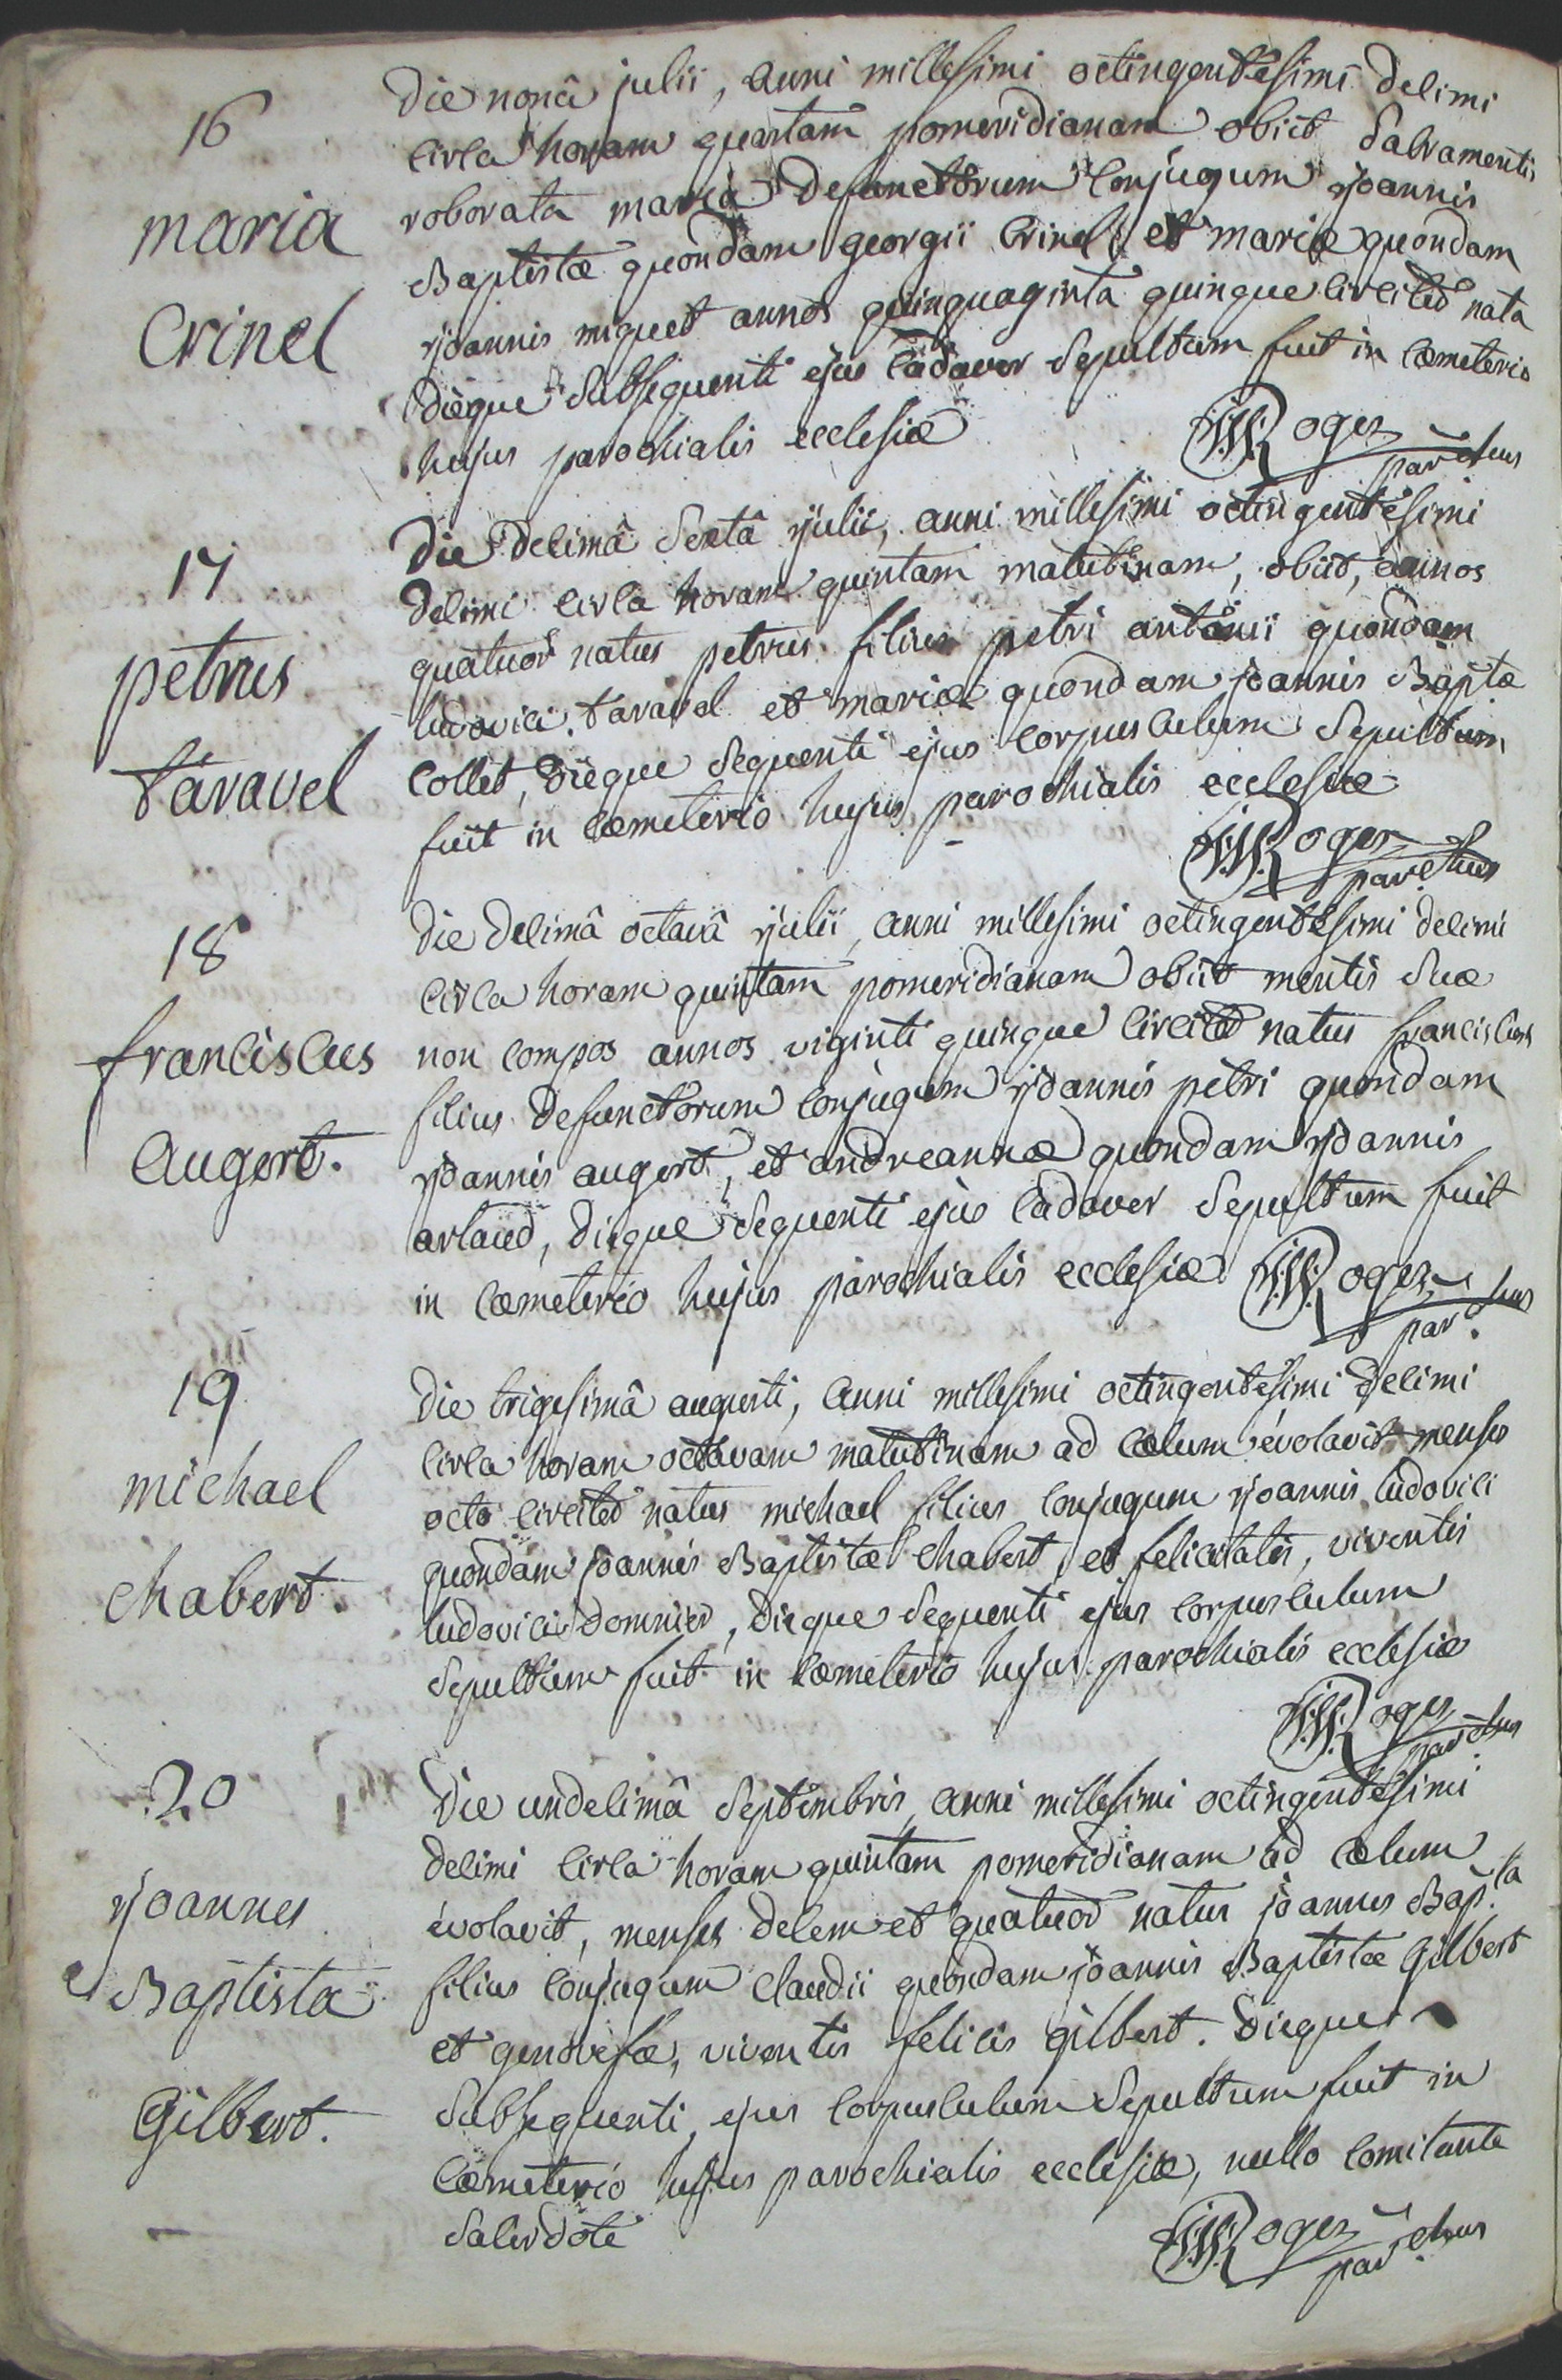 16
maria
Crinel
Die nonâ julii, anni millesimi octingentesimi decimi
circa horam quartam pomeridianam obiit Sacramentis
roborata maria defunctorum conjugum joannis
Baptistæ quondam georgii Crinel et mariæ quondam
joannis miquet annos quinquaginta quinque circiter nata
dieque Subsequenti ejus cadaver Sepultum fuit in cœmeterio
hujus parochialis ecclesiæ
Roger
parochus
17
petrus
taravel
Die decimâ Sextâ julii, anni millesimi octingentesimi
decimi circa horam quintam matutinam, obiit, annos
quatuor natus petrus filius petri antonii quondam
ludovici taravel et mariæ quondam joannis Baptæ
Collet, dieque Sequenti ejus corpusculum Sepultum
fuit in cœmeterio hujus parochialis ecclesiæ
Roger
parochus
18
franciscus
Augert.
Die decimâ octavâ julii, anni millesimi octingentesimi decimi
circa horam quintam pomeridianam obiit mentis Suæ
non compos annos viginti quinque circiter natus franciscus
filius defunctorum conjugum joannis petri quondam
joannis augert, et andreannæ quondam joannis
artaud, dieque Sequenti ejus cadaver Sepultum fuit
in cœmeterio hujus parochialis ecclesiæ Roger
parochus
19
michael
chabert.
Die trigesimâ augusti, anni millesimi octingentesimi decimi
circa horam octavam matutinam ad cœlum évolavit menses
octo circiter natus michael filius conjugum joannis ludovici
quondam joannis Baptistæ chabert, et felicitatis, viventis
ludovici domnier, dieque Sequenti ejus corpusculum
Sepultum fuit in cœmeterio hujus parochialis ecclesiæ
Roger
parochus
20
joannes
Baptista
Gilbert.
Die undecimâ Septembris, anni millesimi octingentesimi
decimi circa horam quintam pomeridianam ad cœlum
évolavit, menses decem et quatuor natus joannes Bap.ta
filius conjugum claudii quondam joannis Baptistæ Gilbert
et genovefæ, viventis felicis gilbert. Dieque
Subsequenti, ejus corpusculum Sepultum fuit in
cœmeterio hujus parochialis ecclesiæ, nullo comitante
Sacerdote
Roger
parochus